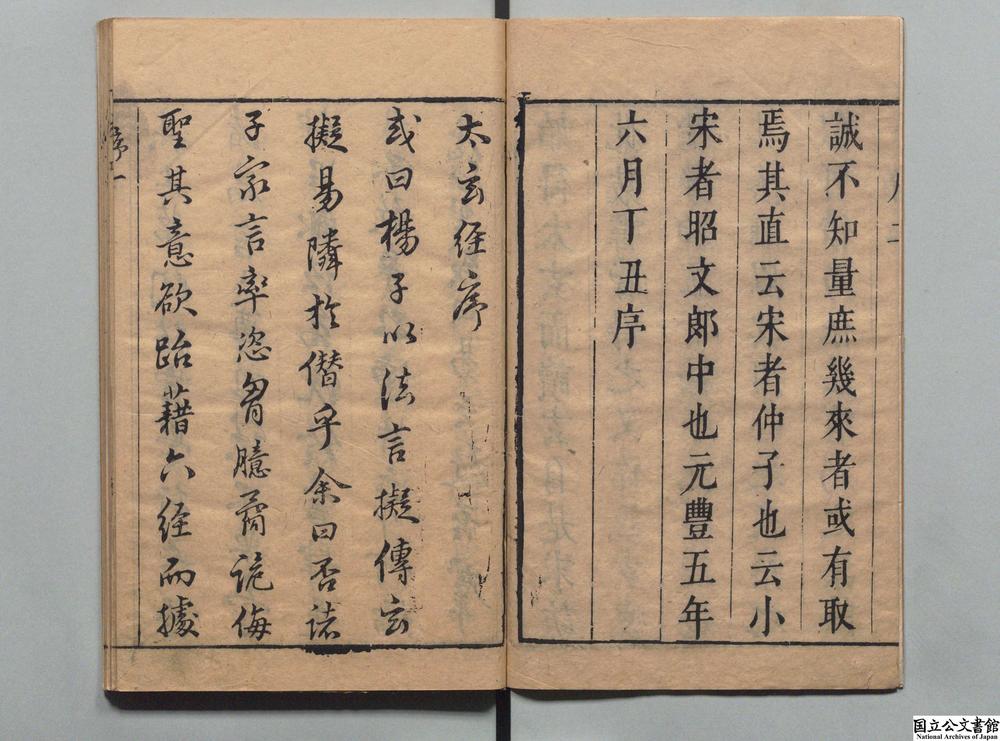 誠不知量庶幾來者或有取
焉其直云宋者仲子也云小
宋者昭文郎中也元豐五年
六月丁丑序
太玄經序
或曰楊子以法言擬傳玄
擬易隣於僭乎余曰否諸
子家言率恣胷臆矞詭侮
聖其意欲跆藉六經而據
序一
国立公文書館
National Archives of Japan